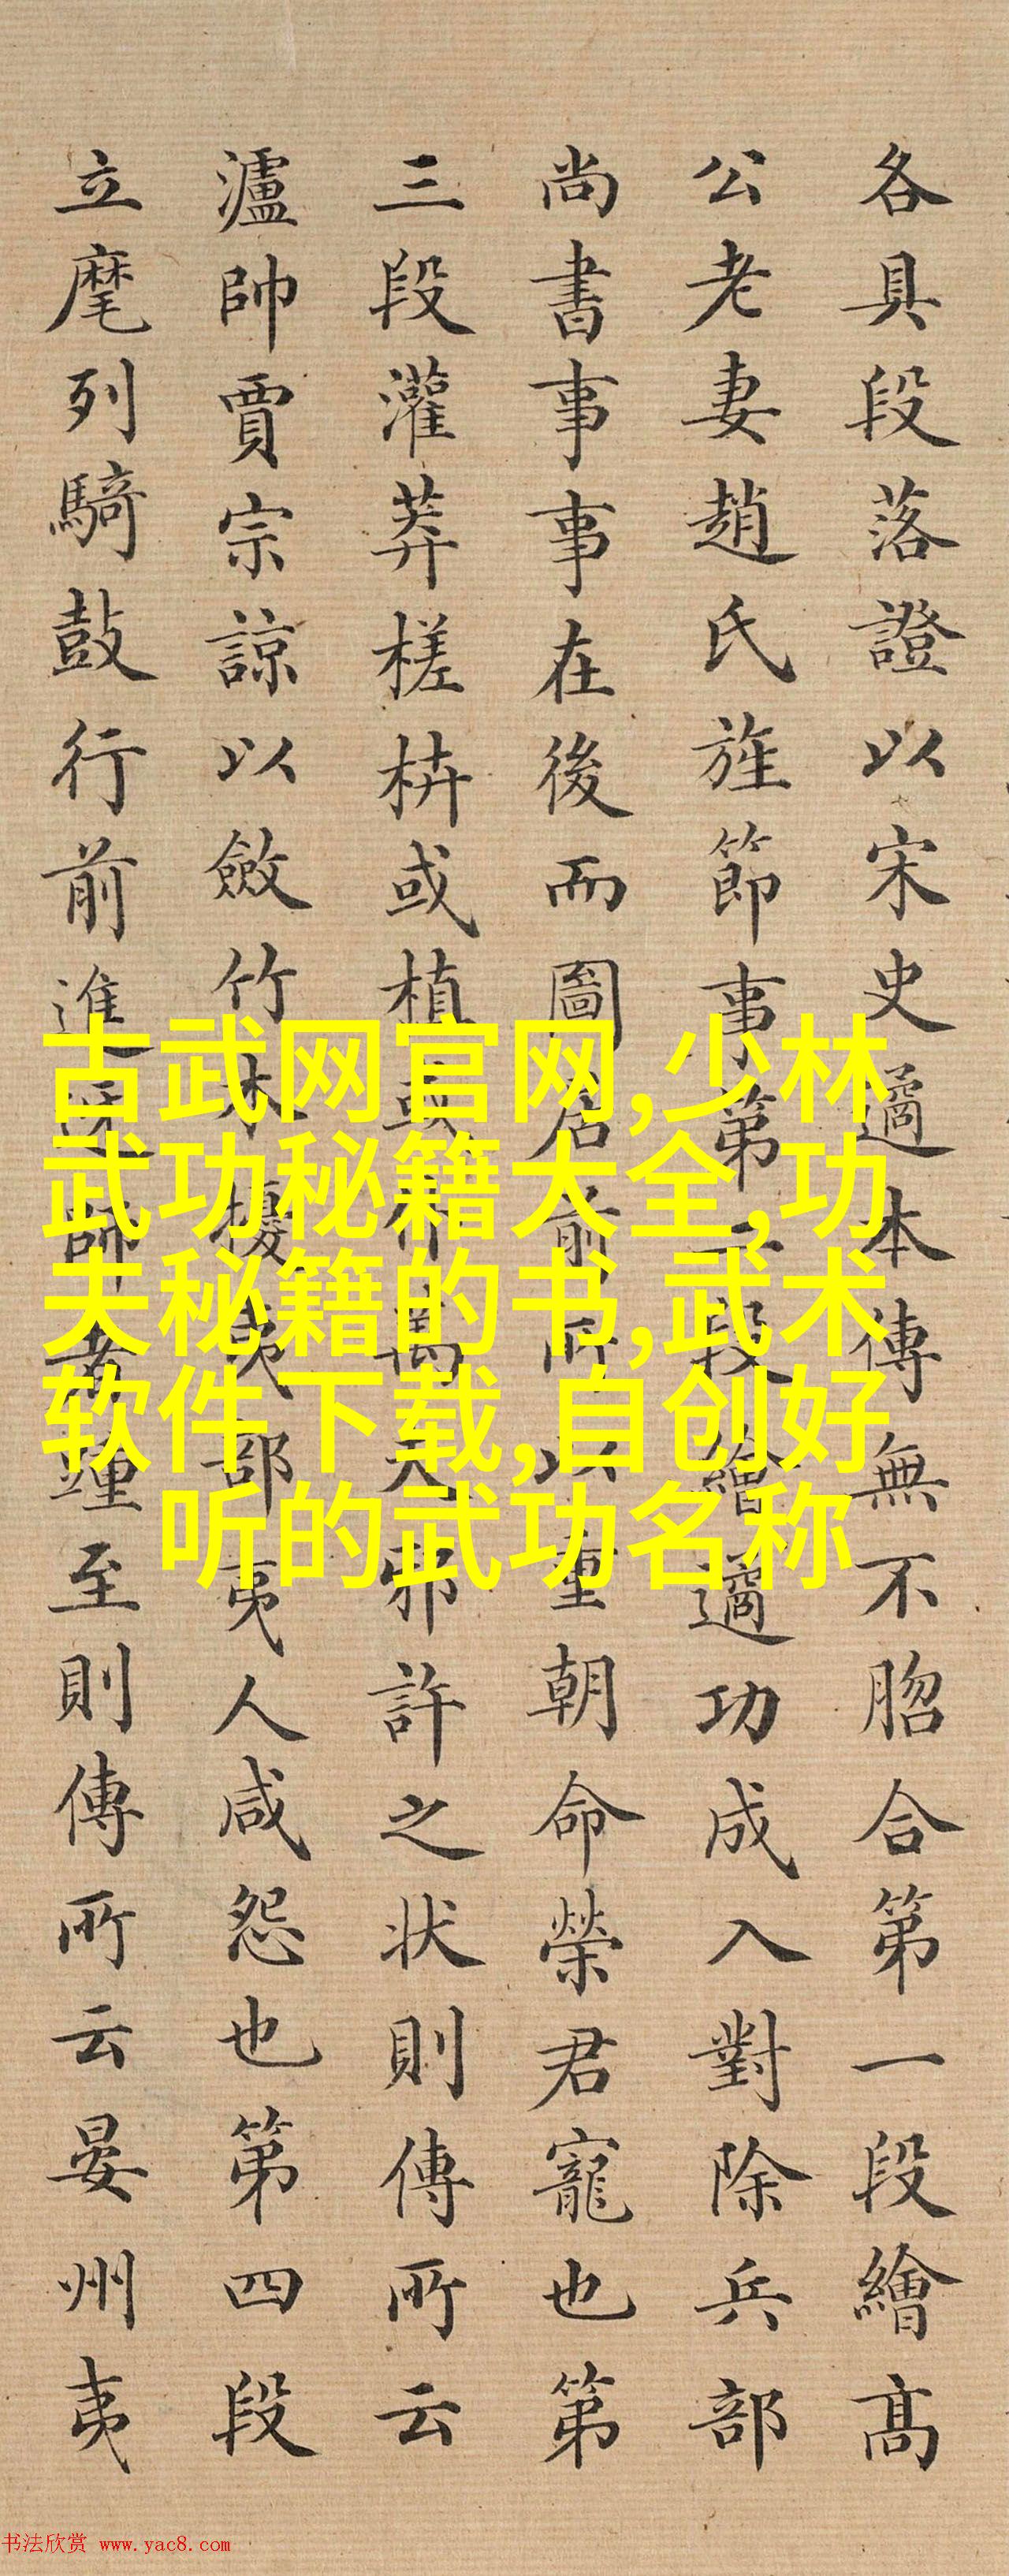 各具段落證以宋史遹本傳無不脗合第一段繪髙
公老妻趙氏旌節事第二段繪遹功成入對除兵部
尚書事事在後而圖居前所以重朝命榮君寵也第
三段灌莽槎枿或植或仆萬天邪許之状則傳所云
瀘帥賈宗諒以斂竹木擾夷部夷人咸怨也第四段
立麾列騎鼓行前進帥者踵至則傳所云晏州夷
古武网官网,少林
武功秘籍大全,功
夫秘籍的书,武术
软件下载,自创好
听的武功名称
书法欣赏 www.yac8.com